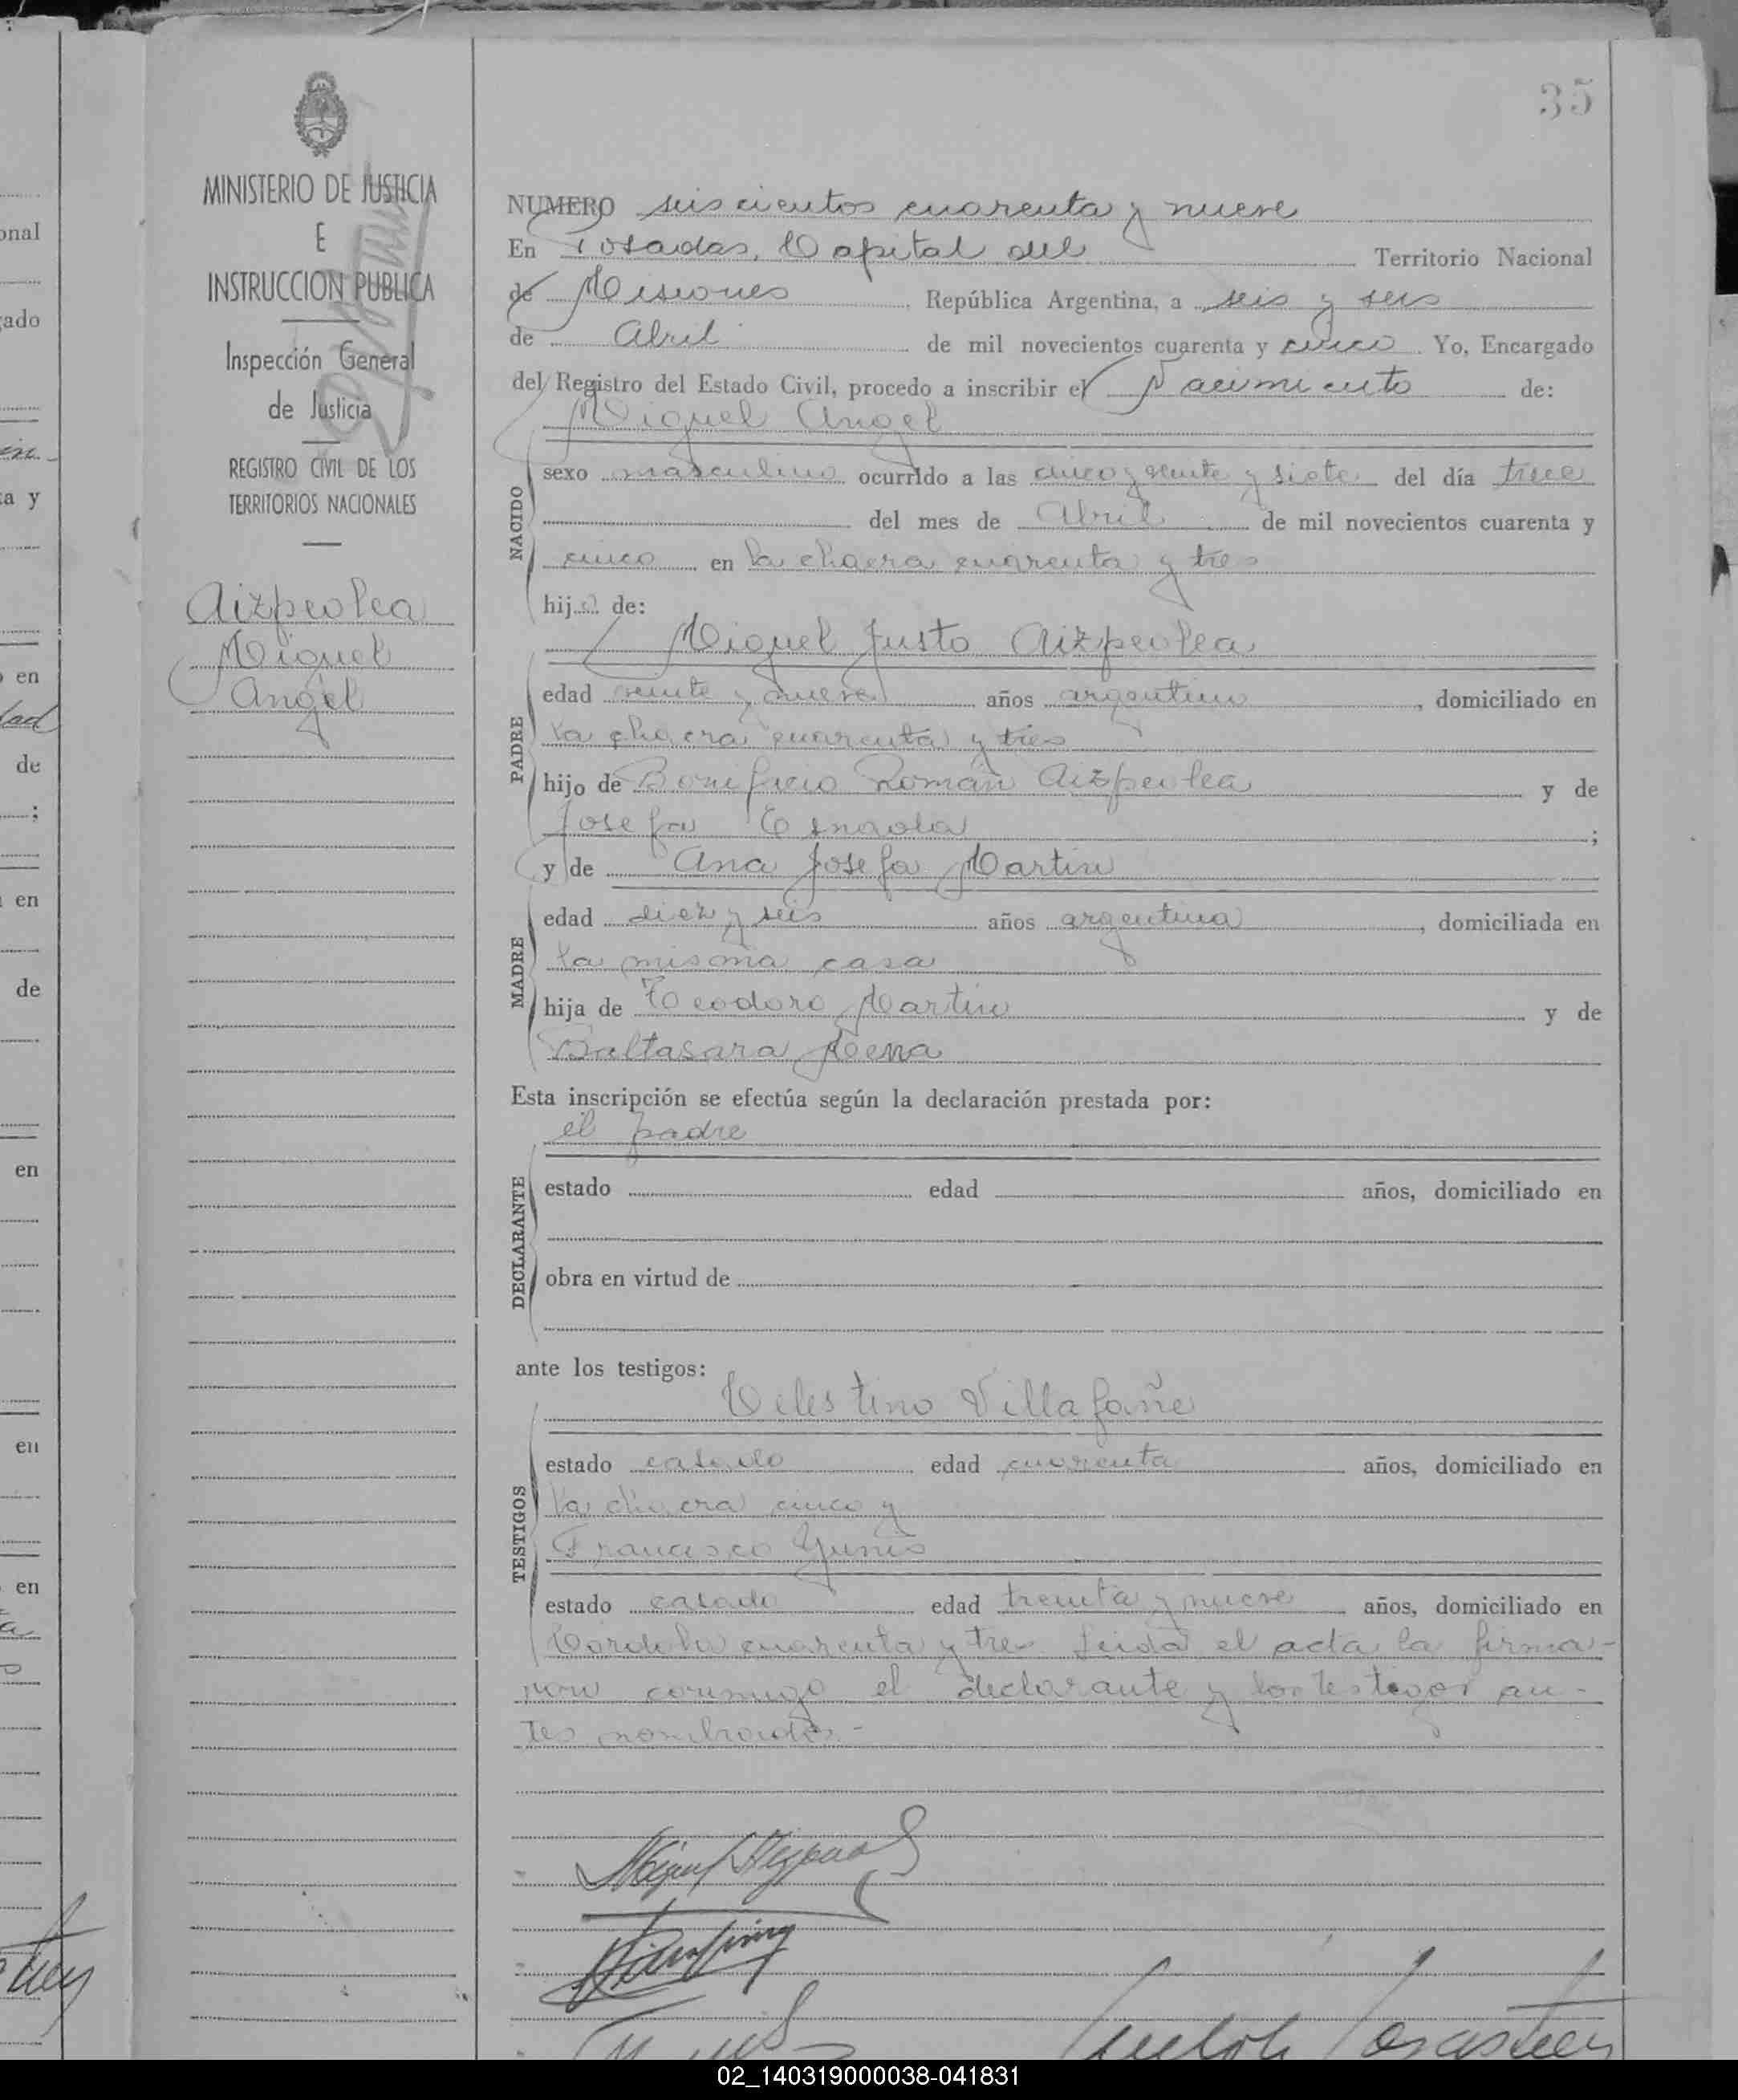 35
MINISTERIO DE JUSTICIA
E
INSTRUCCION PUBLICA
Inspección General
de Justicia
REGISTRO CIVIL DE LOS
TERRITORIOS NACIONALES
Aizpeolea
Miguel
Angel
NUMERO seiscientos cuarenta y nueve
En Posadas, Capital del Territorio Nacional
de Misiones República Argentina, a seis
de Abril de mil novecientos cuarenta y cinco. Yo, Encargado
del Registro del Estado Civil, procedo a inscribir el Nacimiento de:
Miguel Angel
NACIDO
sexo masculino ocurrido a las cinco y veinte y siete del día trece
del mes de Abril de mil novecientos cuarenta y
cinco en la chacra cuarenta y tres
hijo de:
Miguel Justo Aizpeolea
PADRE
edad veinte y nueve años argentino, domiciliado en
la chacra cuarenta y tres
hijo de Bonifacio Román Aizpeolea y de
Josefa ;
y de Ana Josefa Martin
MADRE
edad diez y seis años argentina, domiciliada en
la misma casa
hija de Teodoro Martin y de
Baltasara Mena
Esta inscripción se efectúa según la declaración prestada por:
el padre
DECLARANTE
estado edad años, domiciliado en
obra en virtud de
ante los testigos:
Celestino Villafañe
TESTIGOS
estado casado edad cuarenta años, domiciliado en
la chacra cinco y
Francisco Yunis
estado casado edad treinta y nueve años, domiciliado en
Córdoba cuarenta y tres. Leída el acta la firma-
ron conmigo el declarante y los testigos an-
tes nombrados.-
onal
ado
en-
ta y
en
dad
de
;
en
de
en
en
en
02_140319000038-041831